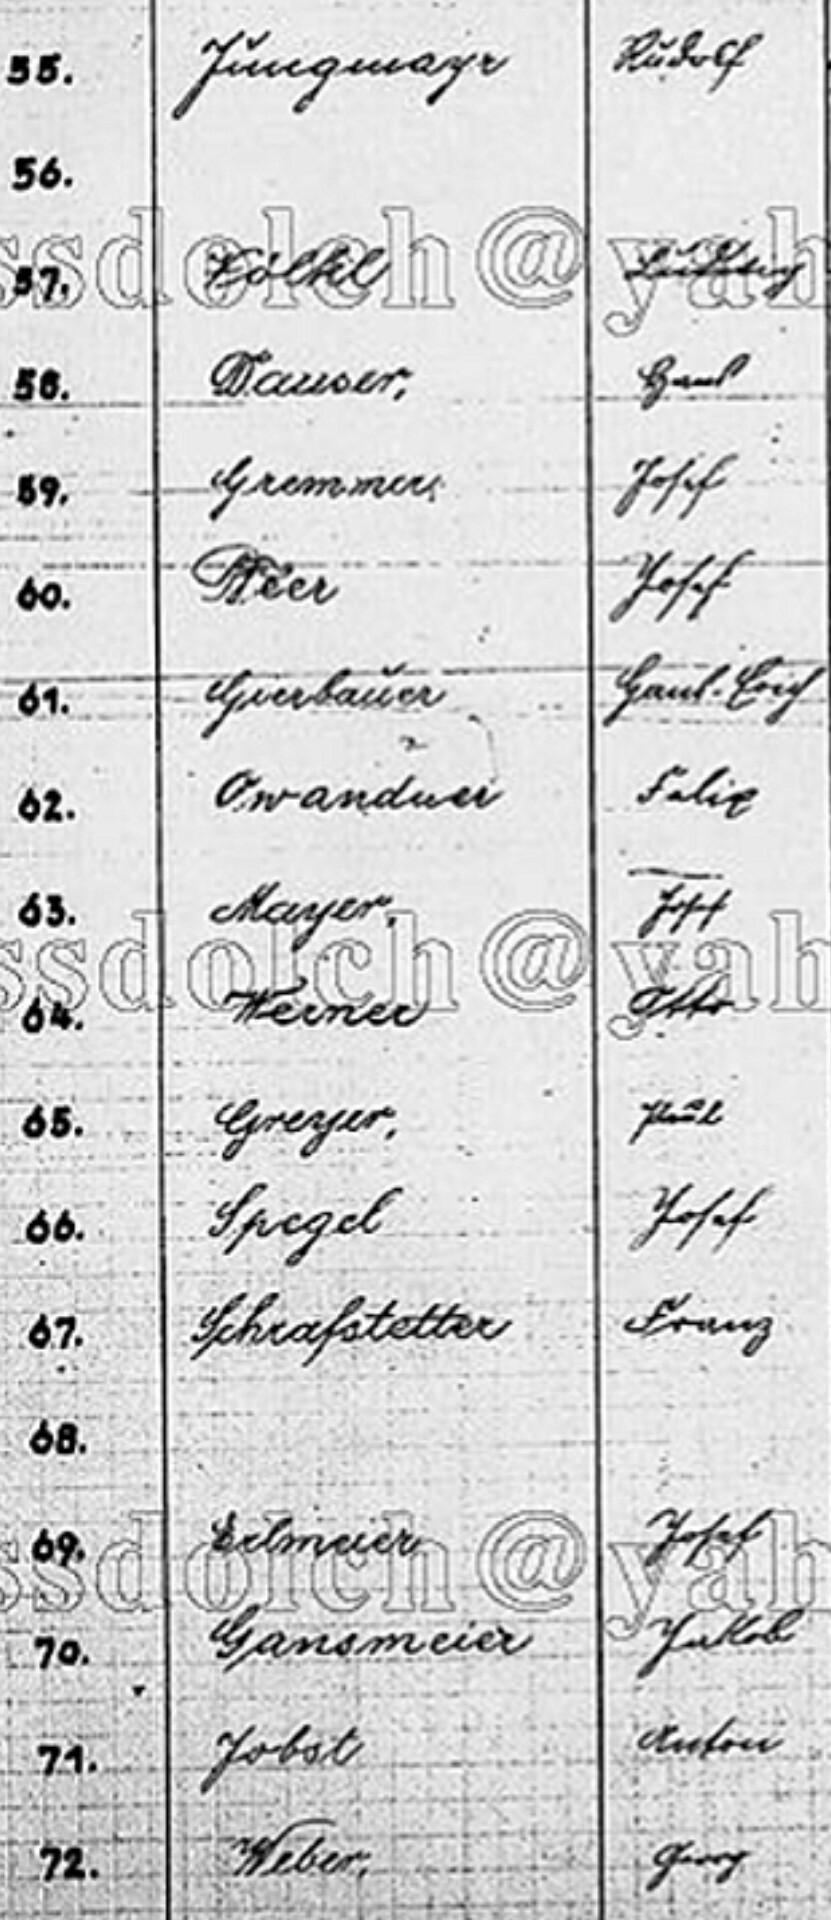 55. Jungmayr Rudolf
56.
57. Völkl Ludwig
58. Dauser, Hans
59. Gremmer, Josef
60. Josef
61. Gierbauer Hans-Erich
62. Felix
63. Mayer, Josef
64. Werner Otto
65. Greyer, Paul
66. Spegel Josef
67. Schrafstetter Franz
68.
69. Erlmeier Josef
70. Gansmeier Jakob
71. Jobst Anton
72. Weber, Georg
ssdolch@yah
ssdolch@yah
ssdolch@yah